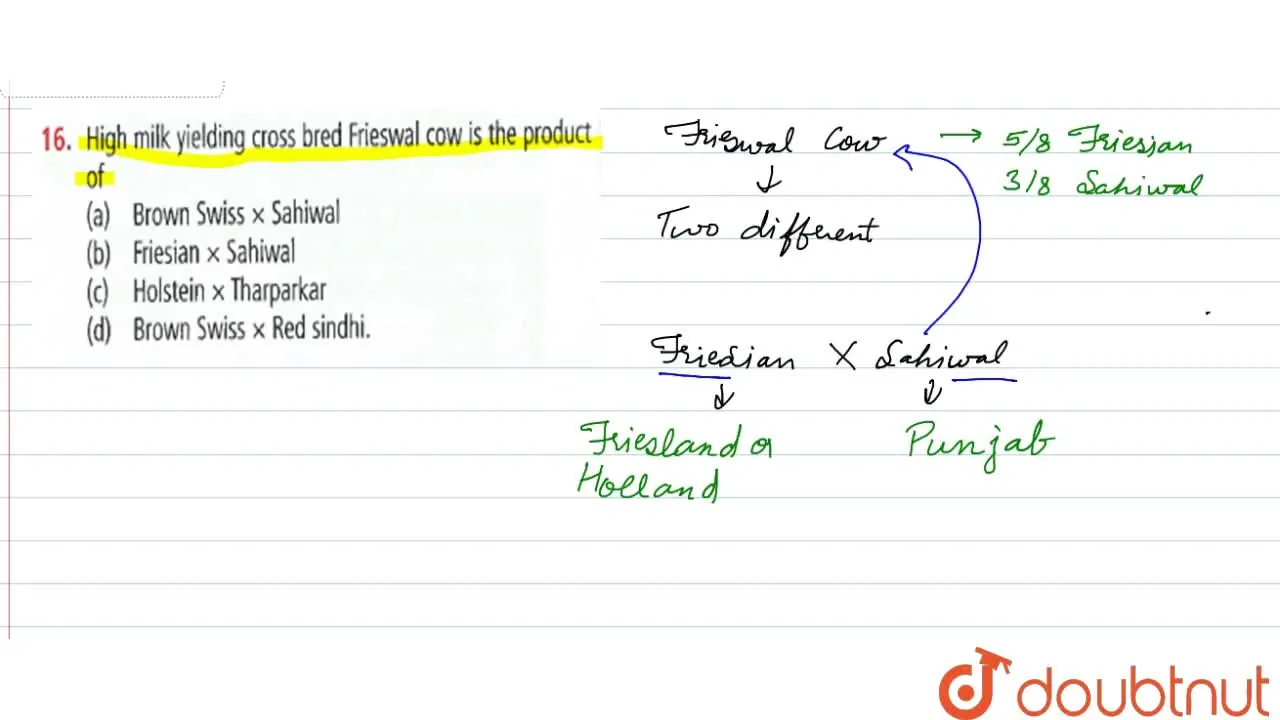 16. High milk yielding cross bred Frieswal cow is the product
of
(a) Brown Swiss × Sahiwal
(b) Friesian × Sahiwal
(c) Holstein × Tharparkar
(d) Brown Swiss × Red sindhi.
Frieswal Cow → 5/8 Friesian
3/8 Sahiwal
↓
Two different
Friesian X Sahiwal
↓ ↓
Friesland or Punjab
Holland
doubtnut